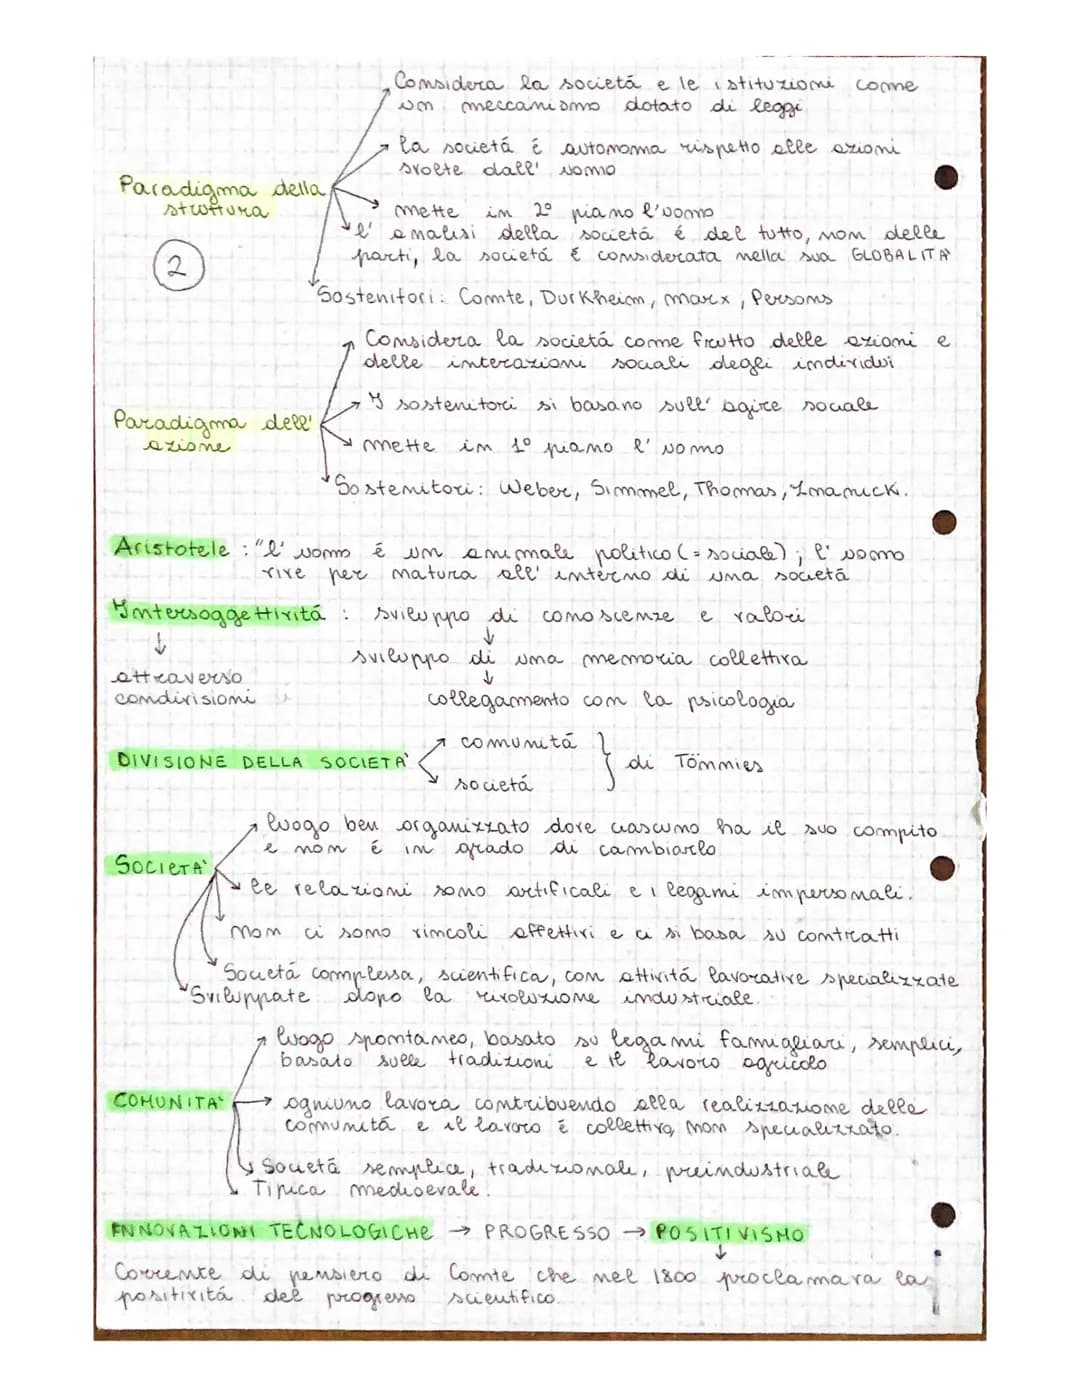 Considera la societá e le istituzioni come
un meccanismo dotato di leggi
la societá é autonoma rispetto alle azioni
svolte dall' uomo
Paradigma della
struttura
mette in 2° piano l'uomo
l' analisi della societá é del tutto, non delle
parti, la societá é considerata nella sua GLOBALITA'
2
Sostenitori: Comte, Durkheim, Marx, Persons
Considera la societá come frutto delle azioni e
delle interazioni sociali degli individui
I sostenitori si basano sull' agire sociale
Paradigma dell'
azione
mette in 1° piano l' uomo
Sostenitori: Weber, Simmel, Thomas, Znanick.
Aristotele : "l' uomo é un animale politico (= sociale) ; l' uomo
vive per natura all' interno di una societá
Intersoggettivitá : sviluppo di conoscenze e valori
↓ ↓
sviluppo di una memoria collettiva
attraverso ↓
condivisioni collegamento con la psicologia
comunitá
DIVISIONE DELLA SOCIETA' } di Tönnies
societá
luogo ben organizzato dove ciascuno ha il suo compito
e non é in grado di cambiarlo
SOCIETA'
le relazioni sono artificali e i legami impersonali.
non ci sono vincoli affettivi e ci si basa su contratti
Societá complessa, scientifica, con attivitá lavorative specializzate
Sviluppate dopo la rivoluzione industriale.
luogo spontaneo, basato su legami famigliari, semplici,
basato sulle tradizioni e il lavoro agricolo
COMUNITA' → ognuno lavora contribuendo alla realizzazione della
comunitá e il lavoro é collettivo, non specializzato.
Societá semplice, tradizionale, preindustriale
Tipica medioevale.
INNOVAZIONI TECNOLOGICHE → PROGRESSO → POSITIVISMO
↓
Corrente di pensiero di Comte che nel 1800 proclamava la
positivitá del progresso scientifico.